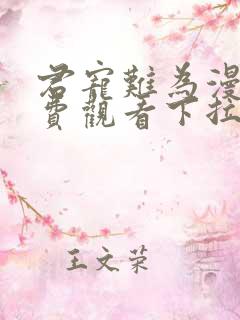 君寵難為漫
費觀看下拉
王文荣